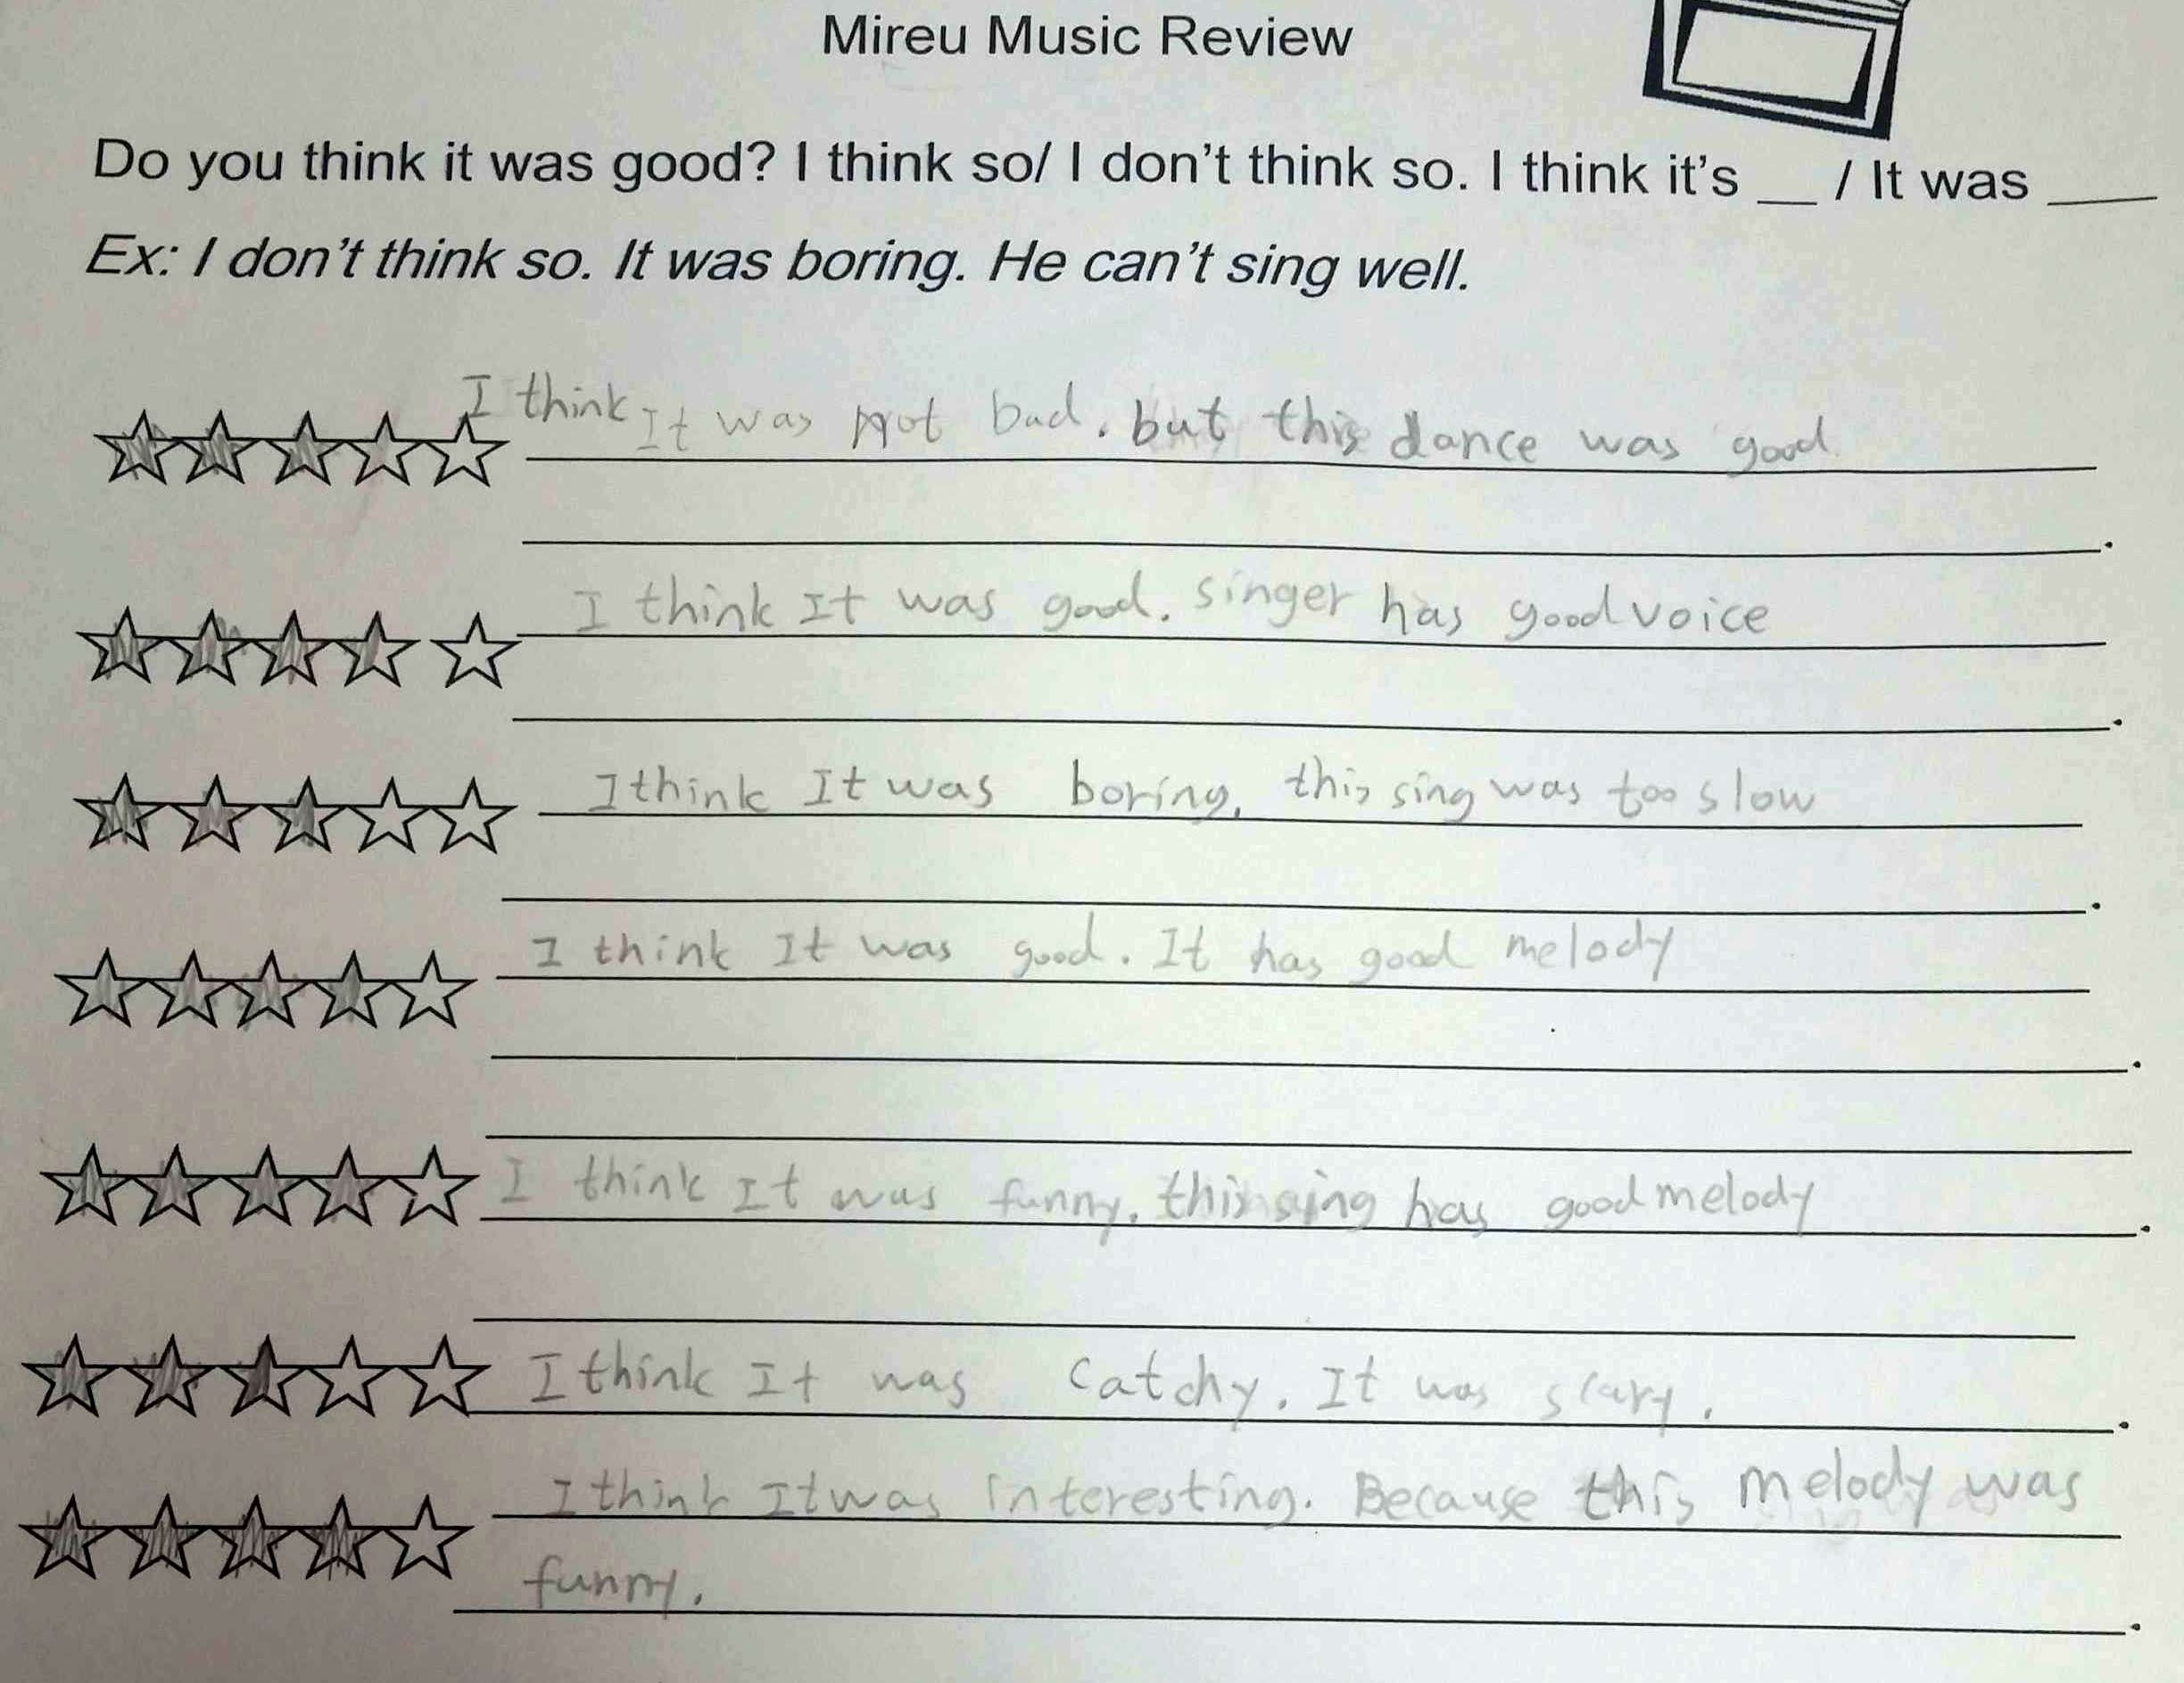 Mireu Music Review
Do you think it was good? I think so/ I don't think so. I think it's __ / It was ____
Ex: I don't think so. It was boring. He can't sing well.
I think It was not bad. but this dance was good
I think It was good. singer has good voice
I think It was boring, this sing was too slow
I think It was good. It has good melody
I think It was funny. this sing has good melody
I think It was catchy. It was scary.
I think It was interesting. Because this melody was
funny.